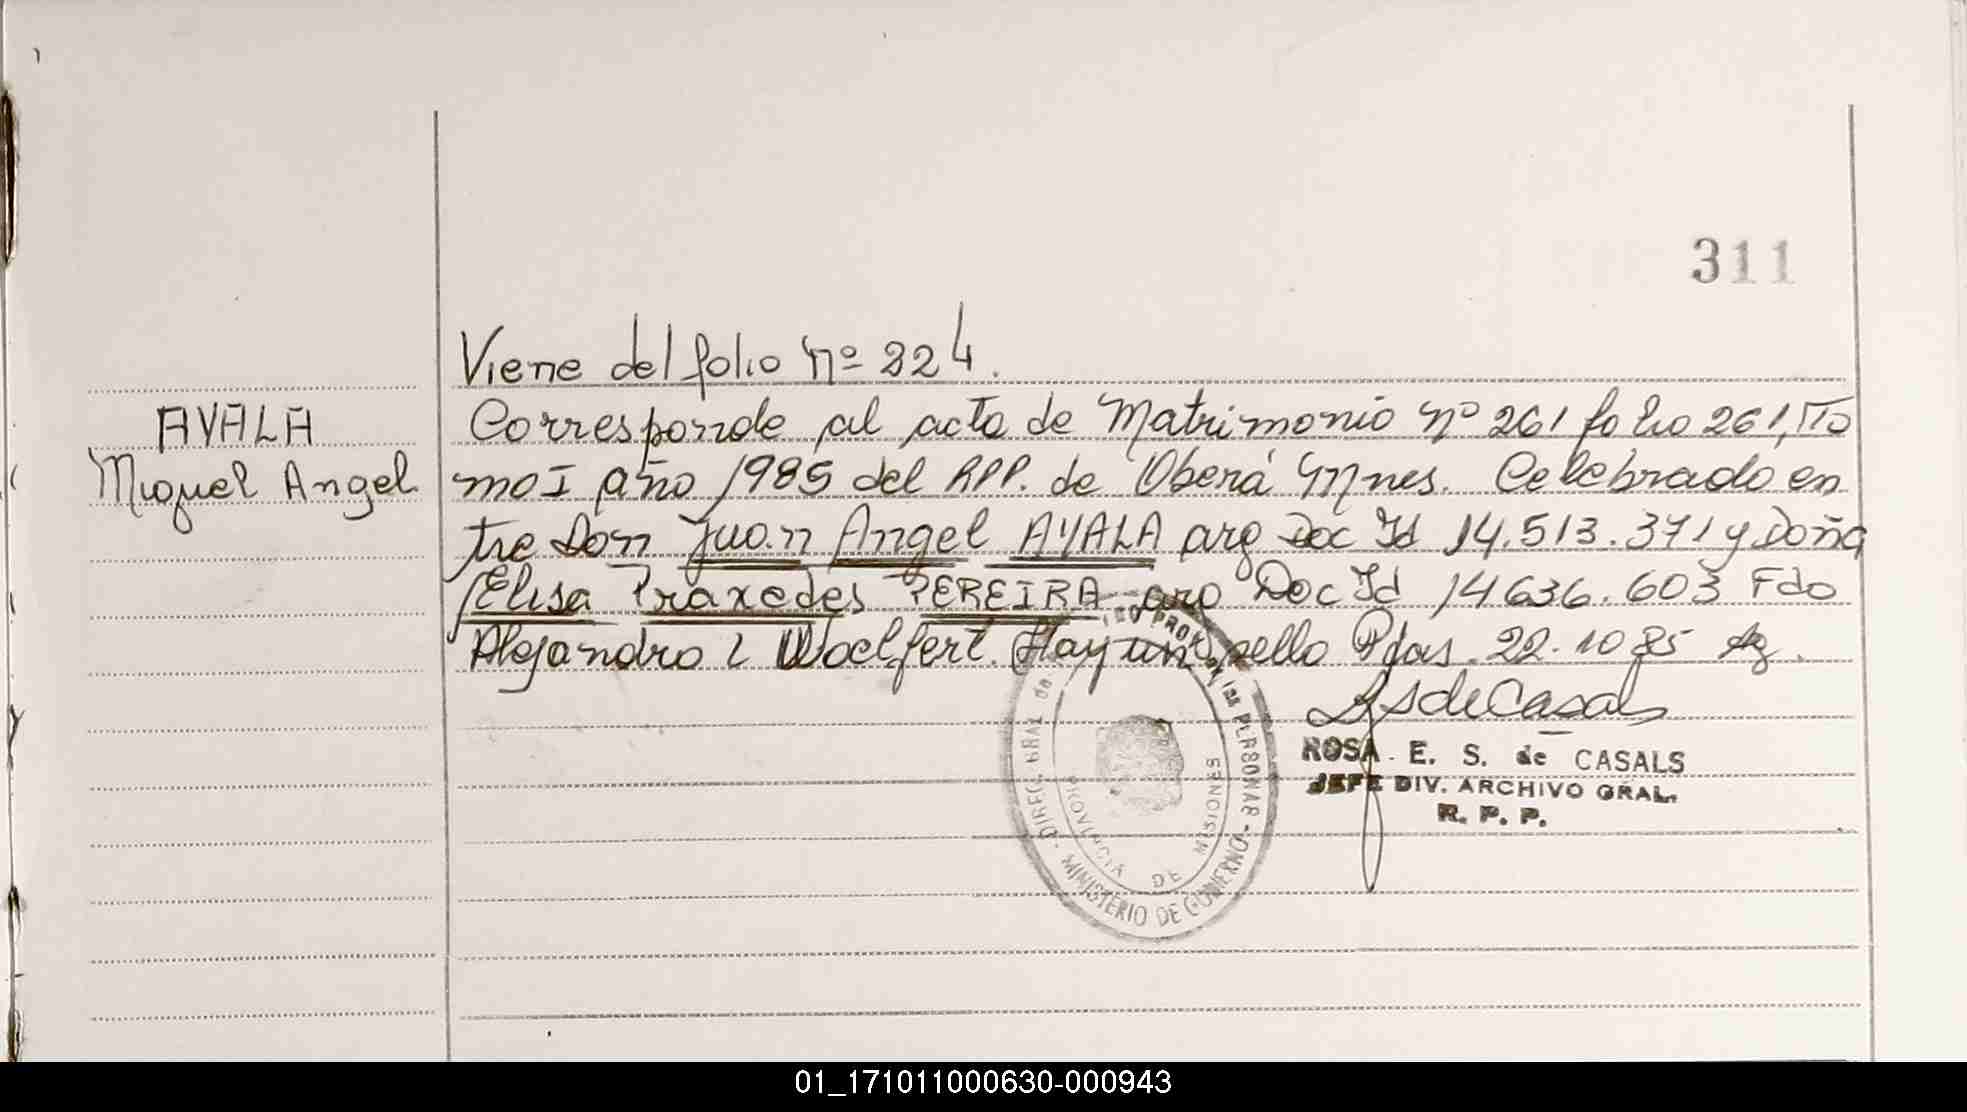 311
Viene del folio Nº 224.
AYALA
Miguel Angel
Corresponde al acta de Matrimonio Nº 261 folio 261, To
mo I año 1985 del RPP. de Oberá Mnes. Celebrado en
tre Don Juan Angel AYALA arg Doc Id 14.513.371 y Doña
Elisa Praxedes PEREIRA arg Doc Id 14636.603 Fdo
Alejandro L Woelfert. Hay un sello Pdas. 22.10 85
ROSA E. S. de CASALS
JEFE DIV. ARCHIVO GRAL.
R. P. P.
PROVINCIA DE MISIONES
MINISTERIO DE GOBIERNO
01_171011000630-000943